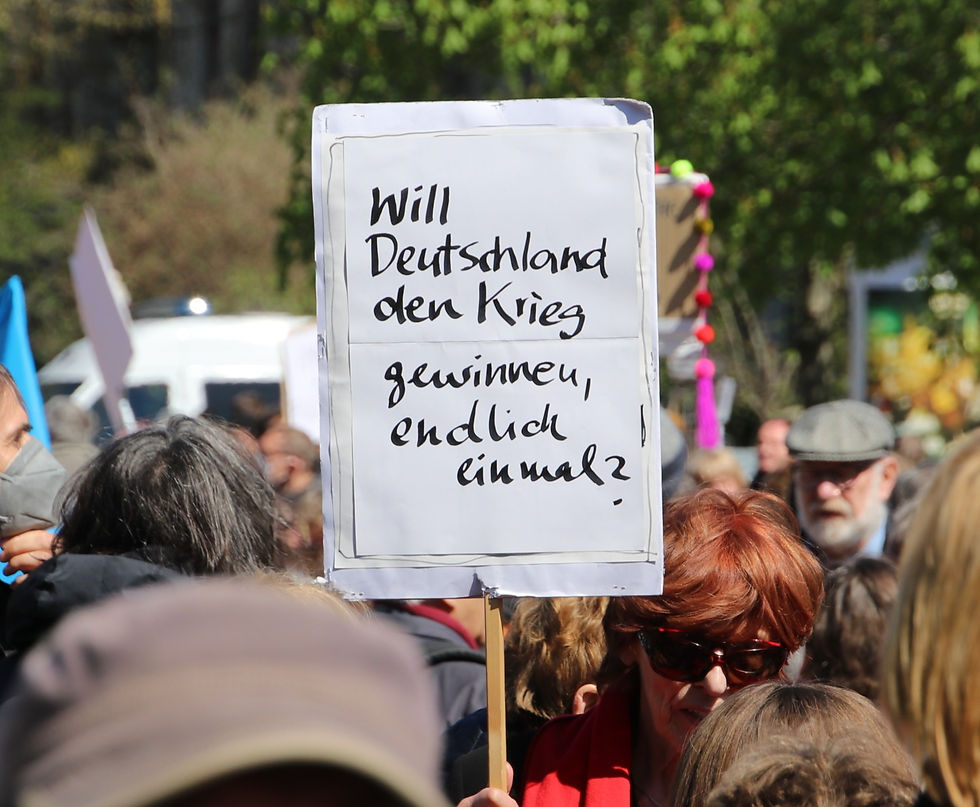 Will
Deutschland
den Krieg
gewinnen,
endlich
einmal?